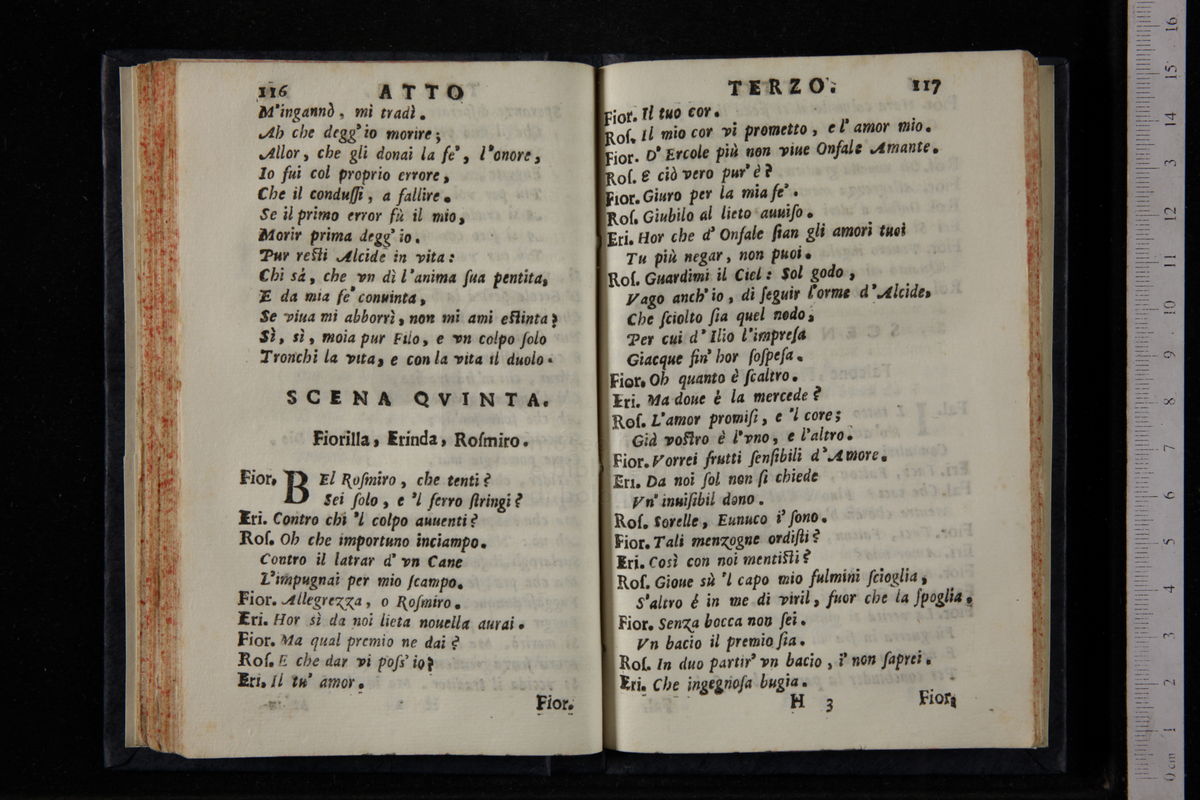 116 ATTO
M'ingannò, mi tradì.
Ah che degg'io morire;
Allor, che gli donai la fe', l'onore,
Io fui col proprio errore,
Che il conduſſi, a fallire.
Se il primo error fù il mio,
Morir prima degg'io.
Pur reſti Alcide in vita:
Chi sá, che vn dì l'anima ſua pentita,
E da mia fe' conuinta,
Se viua mi abborrì, non mi ami eſtinta?
Sì, sì, moia pur Filo, e vn colpo ſolo
Tronchi la vita, e con la vita il duolo.
SCENA QVINTA.
Fiorilla, Erinda, Roſmiro.
Fior. BEl Roſmiro, che tenti?
Sei ſolo, e 'l ferro ſtringi?
Eri. Contro chi 'l colpo auuenti?
Roſ. Oh che importuno inciampo.
Contro il latrar d' vn Cane
L'impugnai per mio ſcampo.
Fior. Allegrezza, o Roſmiro.
Eri. Hor sì da noi lieta nouella aurai.
Fior. Ma qual premio ne dai?
Roſ. E che dar vi poſs' io?
Eri. Il tu' amor.
Fior.
TERZO. 117
Fior. Il tuo cor.
Roſ. Il mio cor vi prometto, e l' amor mio.
Fior. D' Ercole più non viue Onfale Amante.
Roſ. E ciò vero pur' è?
Fior. Giuro per la mia fe'.
Roſ. Giubilo al lieto auuiſo.
Eri. Hor che d' Onfale ſian gli amori tuoi
Tu più negar, non puoi.
Roſ. Guardimi il Ciel: Sol godo,
Vago anch' io, di ſeguir l'orme d'Alcide,
Che ſciolto ſia quel nodo;
Per cui d' Ilio l'impreſa
Giacque fin' hor ſoſpeſa.
Fior. Oh quanto è ſcaltro.
Eri. Ma doue è la mercede?
Roſ. L'amor promiſi, e 'l core;
Già voſtro è l'vno, e l'altro.
Fior. Vorrei frutti ſenſibili d'Amore.
Eri. Da noi ſol non ſi chiede
Vn' inuiſibil dono.
Roſ. Sorelle, Eunuco i' ſono.
Fior. Tali menzogne ordiſti?
Eri. Così con noi mentiſti?
Roſ. Gioue sù 'l capo mio fulmini ſcioglia,
S'altro é in me di viril, fuor che la ſpoglia.
Fior. Senza bocca non ſei.
Vn bacio il premio ſia.
Roſ. In duo partir' vn bacio, i' non ſaprei.
Eri. Che ingegnoſa bugia.
H 3 Fior.
0 cm 1 2 3 4 5 6 7 8 9 10 11 12 13 14 15 16